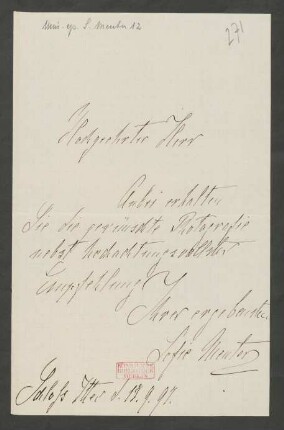 Mus. ep. S. Menter 12
271
Hochgeehrter Herr
Anbei erhalten
Sie die gewünschte Photografie
nebst hochachtungsvollster
Empfehlung
Ihrer ergebenen
Sofie Menter
Schloß Itter d. 19. 9. 99.